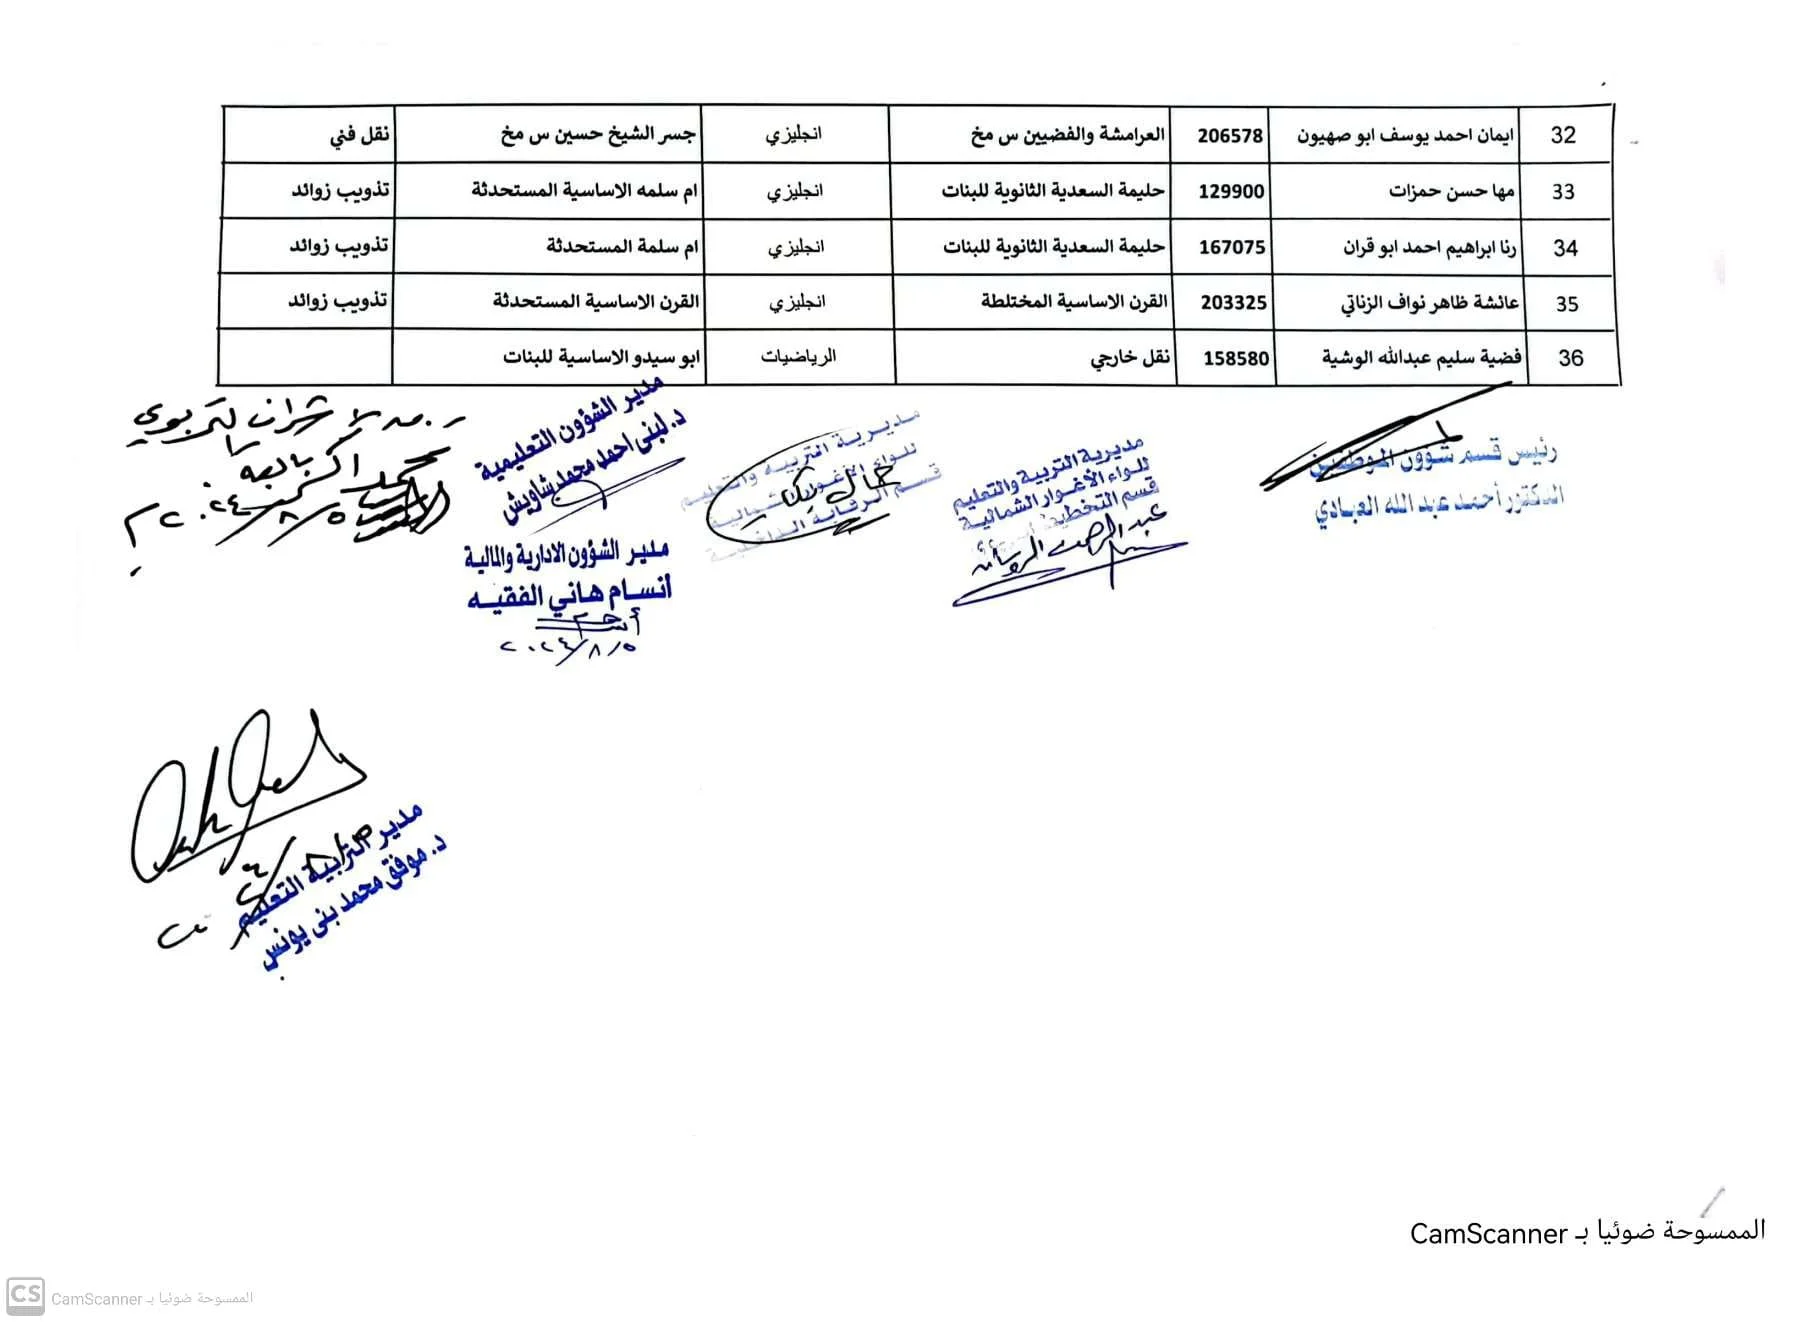 32 ايمان احمد يوسف ابو صهيون 206578 العرامشة والفضيين س مخ انجليزي جسر الشيخ حسين س مخ نقل فني
33 مها حسن حمزات 129900 حليمة السعدية الثانوية للبنات انجليزي ام سلمه الاساسية المستحدثة تذويب زوائد
34 رنا ابراهيم احمد ابو قران 167075 حليمة السعدية الثانوية للبنات انجليزي ام سلمة المستحدثة تذويب زوائد
35 عائشة ظاهر نواف الزناتي 203325 القرن الاساسية المختلطة انجليزي القرن الاساسية المستحدثة تذويب زوائد
36 فضية سليم عبدالله الوشية 158580 نقل خارجي الرياضيات ابو سيدو الاساسية للبنات
رئيس قسم شؤون الموظفين
الدكتور أحمد عبد الله العبادي
مديرية التربية والتعليم
للواء الأغوار الشمالية
قسم التخطيط
مديرية التربية والتعليم
للواء الأغوار الشمالية
قسم الرقابة الداخلية
مدير الشؤون التعليمية
د. لبنى احمد محمد شاويش
مدير الشؤون الادارية والمالية
أنسام هاني الفقيه
٢٠٢٤/٨/٥
٢٠٢٤/٨/٥
مدير التربية والتعليم
د. موفق محمد بني يونس
الممسوحة ضوئيا بـ CamScanner
CS الممسوحة ضوئيا بـ CamScanner